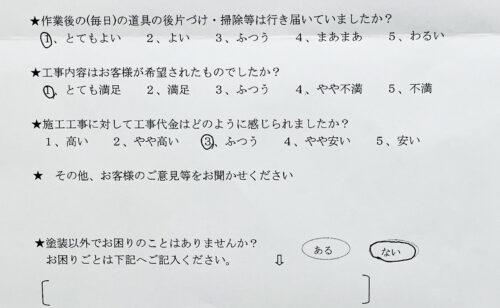 ★作業後の(毎日)の道具の後片づけ・掃除等は行き届いていましたか?
1、とてもよい 2、よい 3、ふつう 4、まあまあ 5、わるい
★工事内容はお客様が希望されたものでしたか?
1、とても満足 2、満足 3、ふつう 4、やや不満 5、不満
★施工工事に対して工事代金はどのように感じられましたか?
1、高い 2、やや高い 3、ふつう 4、やや安い 5、安い
★ その他、お客様のご意見等をお聞かせください
★塗装以外でお困りのことはありませんか? ある ない
お困りごとは下記へご記入ください。 ⇩